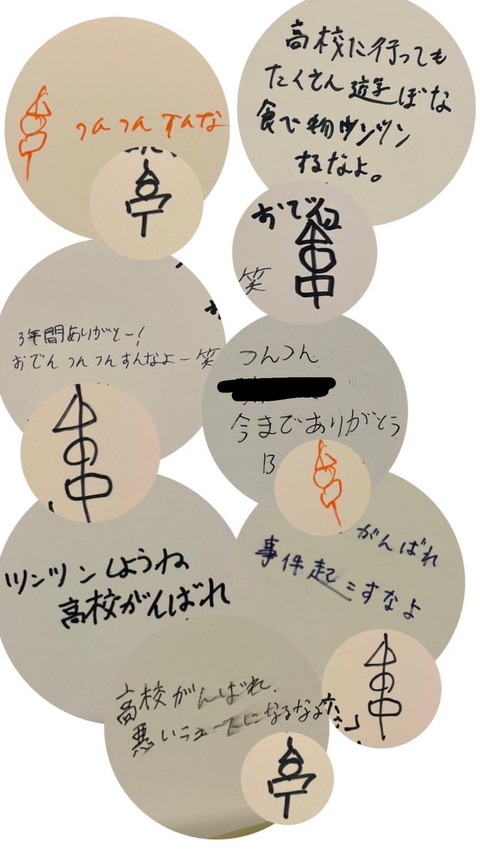 つんつん すんな
高校に行っても
たくさん遊ぼな
食べ物ツンツン
するなよ。
おでん
笑
3年間ありがとー!
おでん つんつんすんなよー笑
つんつん
今までありがとう
B
ツンツンしようね
高校がんばれ
がんばれ
事件起こすなよ
高校がんばれ.
悪いニュースになるなよ